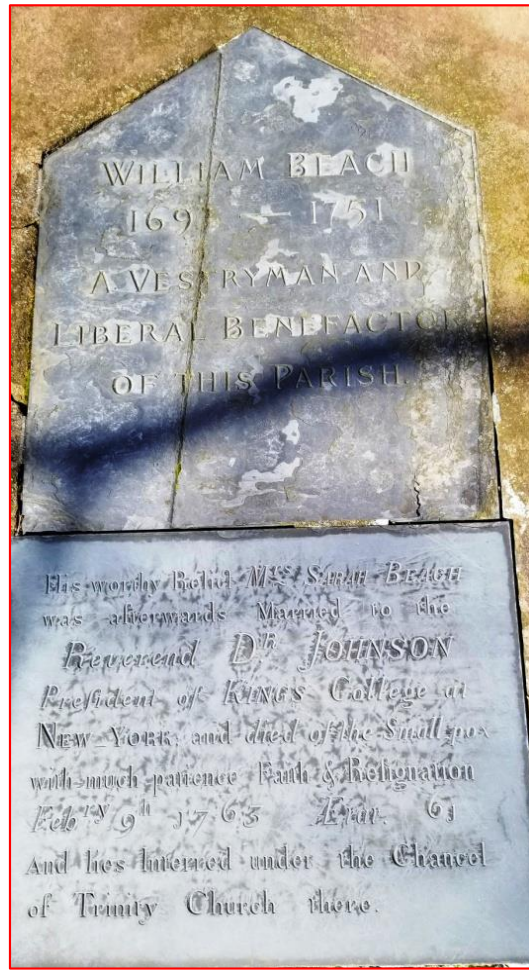 WILLIAM BEACH
169 — 1751
A VESTRYMAN AND
LIBERAL BENEFACTOR
OF THIS PARISH.
His worthy Relict Mrs SARAH BEACH
was afterwards Married to the
Reverend Dr JOHNSON
Preſident of KINGS College in
NEW-YORK, and died of the Small-pox
with much patience Faith & Reſignation
Febry 9th 1763 Ætat. 61
And lies Interred under the Chancel
of Trinity Church there.